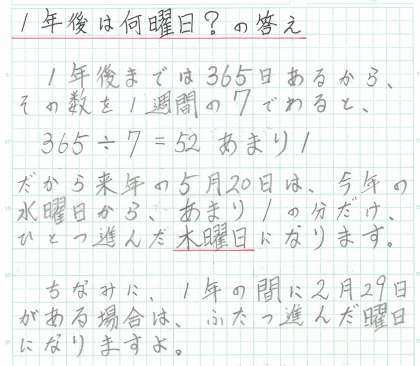 1年後は何曜日?の答え
1年後までは365日あるから、
その数を1週間の7でわると、
365÷7=52 あまり1
だから来年の5月20日は、今年の
水曜日から、あまり1の分だけ、
ひとつ進んだ木曜日になります。
ちなみに、1年の間に2月29日
がある場合は、ふたつ進んだ曜日
になりますよ。